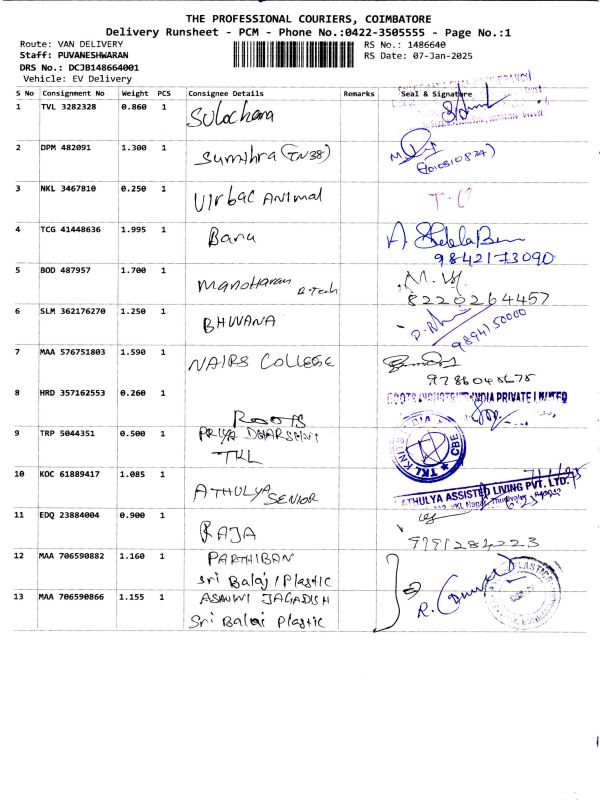 THE PROFESSIONAL COURIERS, COIMBATORE
Delivery Runsheet - PCM - Phone No.:0422-3505555 - Page No.:1
Route: VAN DELIVERY RS No.: 1486640
Staff: PUVANESHWARAN RS Date: 07-Jan-2025
DRS No.: DCJB148664001
Vehicle: EV Delivery
S No Consignment No Weight PCS Consignee Details Remarks Seal & Signature
1 TVL 3282328 0.860 1 Sulochana
2 DPM 482091 1.300 1 Sumithra (TN38)
3 NKL 3467810 0.250 1 Virbac Animal
4 TCG 41448636 1.995 1 Banu
9842173090
5 BOD 487957 1.700 1 Manoharan B.Tech
8220264457
6 SLM 362176270 1.250 1 BHWANA
9894150000
7 MAA 576751803 1.590 1 NAIRS COLLEGE
8 HRD 357162553 0.260 1 ROOTS INDIA PRIVATE LIMITED
9 TRP 5044351 0.500 1 PRIYA DHARSHNI
TKL
TKL KNI CBE
10 KOC 61889417 1.085 1 ATHULYA SENIOR
ATHULYA ASSISTED LIVING PVT. LTD.
11 EDQ 23884004 0.900 1 RAJA
12 MAA 706590882 1.160 1 PARTHIBAN
Sri Balaji Plastic
13 MAA 706590866 1.155 1 ASWWI JAGADISH
Sri Balai Plastic